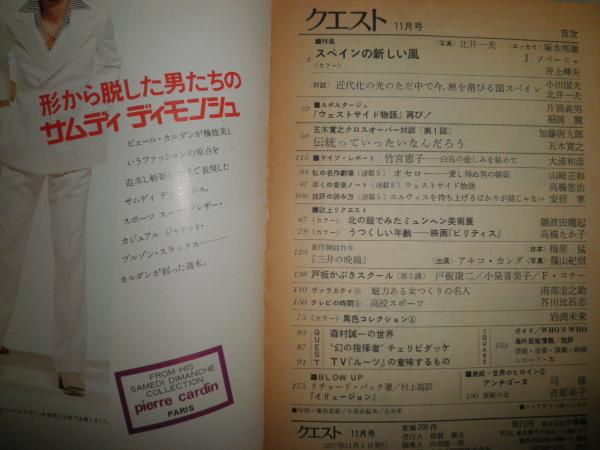 形から脱した男たちの
サムディ ディモンシュ
ピエール・カルダンが機能美と
いうファッションの原点を
追求し斬新な
で表現した
サムディ ディモンシュ。
スポーツ スーツ・ブレザー・
カジュアル ジャケット・
ブルゾン・スラックス——
カルダンが創った週末。
FROM HIS
SAMEDI DIMANCHE
COLLECTION
pierre cardin
PARIS
クエスト 11月号
目次
■特集 〈写真〉北井一夫 〈エッセイ〉塚本邦雄
3 スペインの新しい風
〈カラー〉
J. ソペーニャ
井上輝夫
〈対談〉近代化の光のただ中で今、熱を帯びる国スペイン
小川国夫
北井一夫
■ルポルタージュ
22 『ウェストサイド物語』再び!
片岡義男
堀岡 翼
五木寛之クロスオーバー対談〔第1回〕
50 伝統っていったいなんだろう
加藤唐九郎
五木寛之
115 ■ライブ・レポート 竹宮恵子——白鳥の悲しみを秘めて 大浦和彦
94 私の名作劇場〔連載5〕オセロー——愛し得ぬ男の嫉妬 山崎正和
47 ぼくの音楽ノート〔連載5〕ウェストサイド物語 高橋悠治
106 批評の読み方〔連載5〕エルヴィスを持ち上げるばかりが能じゃない 安倍 寧
■誌上リクエスト
67 〈カラー〉北の鎧でみたミュンヘン美術展 難波田龍起
79 〈カラー〉うつくしい年齢——映画『ビリティス』 高橋たか子
新作舞踊台本 〈台本〉梅原 猛
125 『三井の晩鐘』 〈出演〉アキコ・カンダ 〈写真〉篠山紀信
138 戸板かぶきスクール〔第5講〕 戸板康二/小泉喜美子/F・コナー
110 ヴァラエティ⑤ 魅力ある女つくりの名人 南部圭之助
150 テレビの時間⑤ 高校スポーツ 芥川比呂志
75 〈カラー〉異色コレクション④ 岩淵未来
QUEST
83 森村誠一の世界
87 “幻の指揮者”チェリビダッケ
91 TV『ルーツ』の意味するもの
SQUARE
ガイド/WHO'S WHO
153 海外芸術情報/批評
美術・音楽・演劇・映画
レコード・本
■BLOW UP
175 リチャード・バック著/村上龍訳
『イリュージョン』
■表紙—世界のヒロイン⑤
アンチゴーヌ 司 修
190 表紙の女 吉原幸子
クエスト 11月号
定価200円
1977年11月1日発行